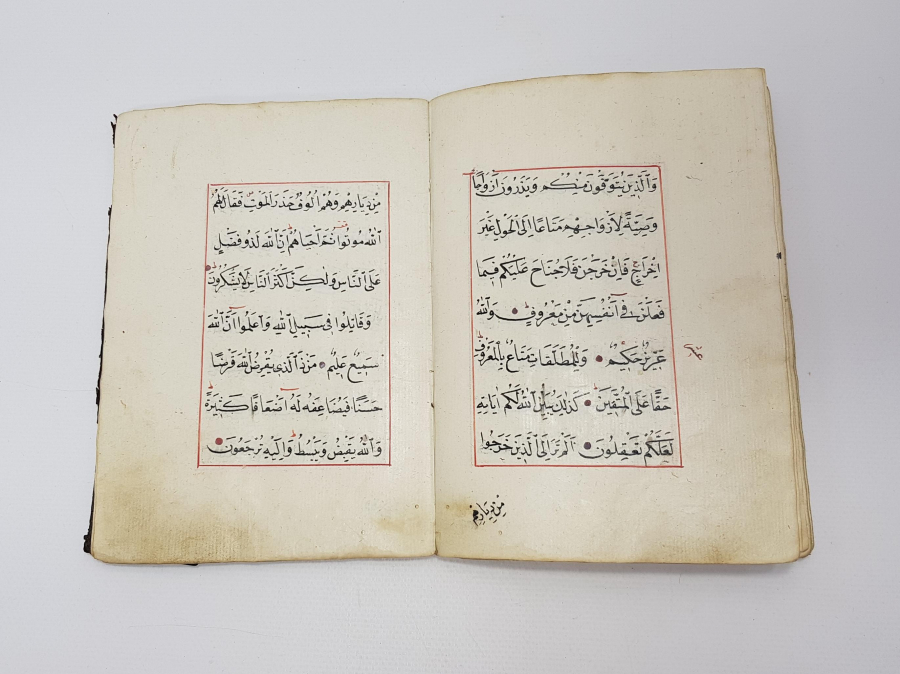 وَالَّذِينَ يُتَوَفَّوْنَ مِنْكُمْ وَيَذَرُونَ أَزْوَاجًا
وَصِيَّةً لِأَزْوَاجِهِمْ مَتَاعًا اِلَى الْحَوْلِ غَيْرَ
اِخْرَاجٍ فَاِنْ خَرَجْنَ فَلَا جُنَاحَ عَلَيْكُمْ فِيمَا
فَعَلْنَ فِي اَنْفُسِهِنَّ مِنْ مَعْرُوفٍ وَاللّٰهُ
عَزِيزٌ حَكِيمٌ وَلِلْمُطَلَّقَاتِ مَتَاعٌ بِالْمَعْرُوفِ
حَقًّا عَلَى الْمُتَّقِينَ كَذٰلِكَ يُبَيِّنُ اللّٰهُ لَكُمْ اٰيَاتِهِ
لَعَلَّكُمْ تَعْقِلُونَ اَلَمْ تَرَ اِلَى الَّذِينَ خَرَجُوا
مِنْ دِيَارِهِمْ
مِنْ دِيَارِهِمْ وَهُمْ اُلُوفٌ حَذَرَ الْمَوْتِ فَقَالَ لَهُمُ
اللّٰهُ مُوتُوا ثُمَّ اَحْيَاهُمْ اِنَّ اللّٰهَ لَذُو فَضْلٍ
عَلَى النَّاسِ وَلٰكِنَّ اَكْثَرَ النَّاسِ لَا يَشْكُرُونَ
وَقَاتِلُوا فِي سَبِيلِ اللّٰهِ وَاعْلَمُوا اَنَّ اللّٰهَ
سَمِيعٌ عَلِيمٌ مَنْ ذَا الَّذِي يُقْرِضُ اللّٰهَ قَرْضًا
حَسَنًا فَيُضَاعِفَهُ لَهُ اَضْعَافًا كَثِيرَةً
وَاللّٰهُ يَقْبِضُ وَيَبْسُطُ وَاِلَيْهِ تُرْجَعُونَ